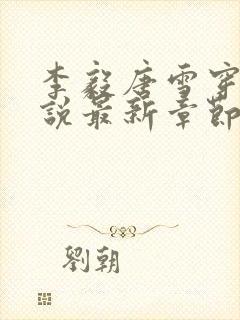 李毅唐雪穿
說最新章節
劉朝